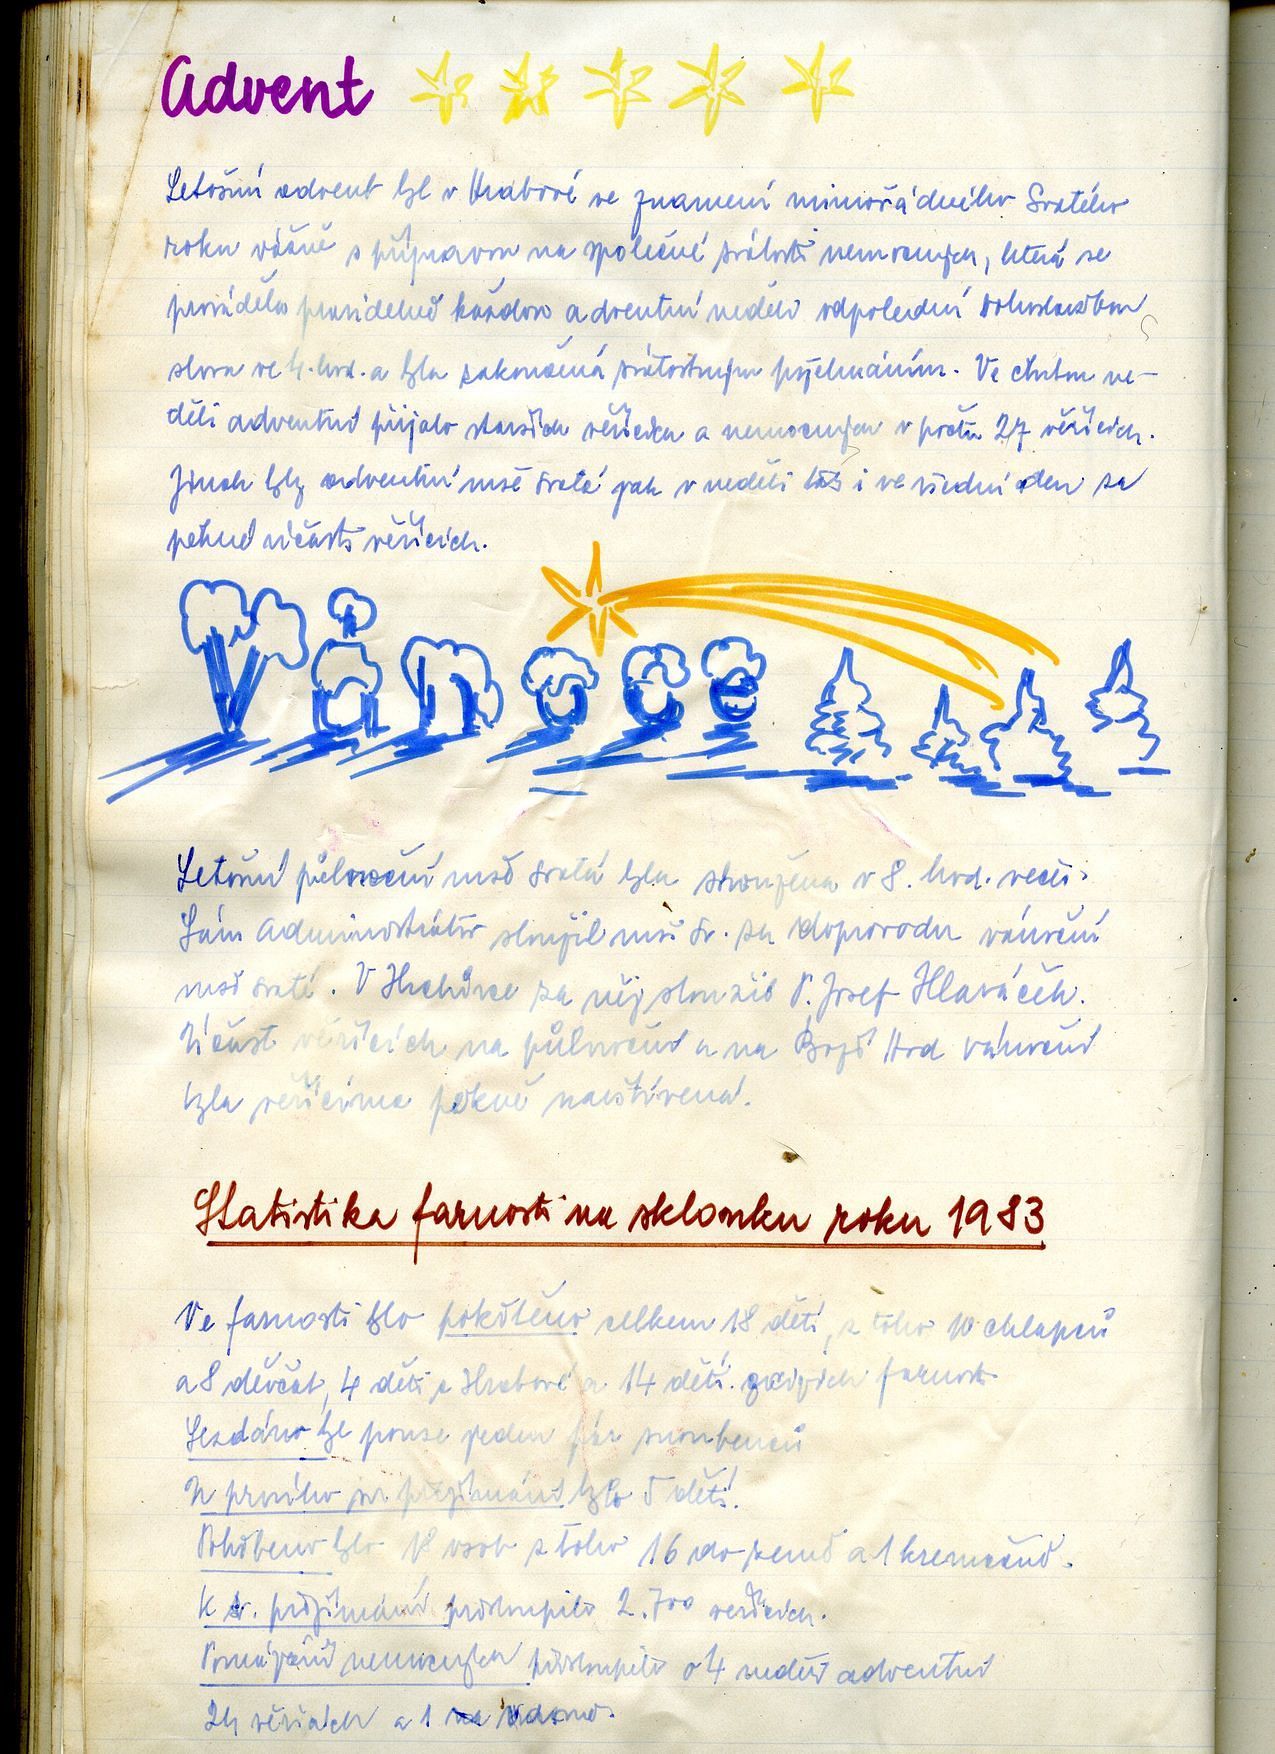 Advent
Letošní advent byl v Hrabové ve znamení mimořádného Svatého
roku vážně s přípravou na společné svátosti nemocných, která se
prováděla pravidelně každou adventní neděli odpolední bohoslužbou
slova ve 4. hod. a byla zakončená svátostným požehnáním. Ve čtvrtou ne-
děli adventní přijalo starších věřících a nemocných v počtu 27 věřících.
Jinak byly adventní mše svaté jak v neděli tak i ve všední den za
pěkné účasti věřících.
Letošní půlnoční mše svatá byla sloužena v 8. hod. večer.
Sám Administrátor sloužil mši sv. za doprovodu vánoční
mše svaté. V Hrabůvce za něj sloužil P. Josef Hlaváček.
Účast věřících na půlnoční a na Boží Hod vánoční
byla věřícíma pěkně navštívená.
Statistika farnosti na sklonku roku 1983
Ve farnosti bylo pokřtěno celkem 18 dětí, z toho 10 chlapců
a 8 děvčat, 4 děti z Hrabové a 14 dětí z cizích farností
Sezdáno byl pouze jeden pár snoubenců
U prvního sv. přijímání bylo 5 dětí.
Pohřbeno bylo osob z toho 16 do země a 1 kremační.
K sv. přijímání přistoupilo 2.700 věřících.
Pomazání nemocných přistoupilo o 4 neděli adventní
24 věřících a 1 na doma.